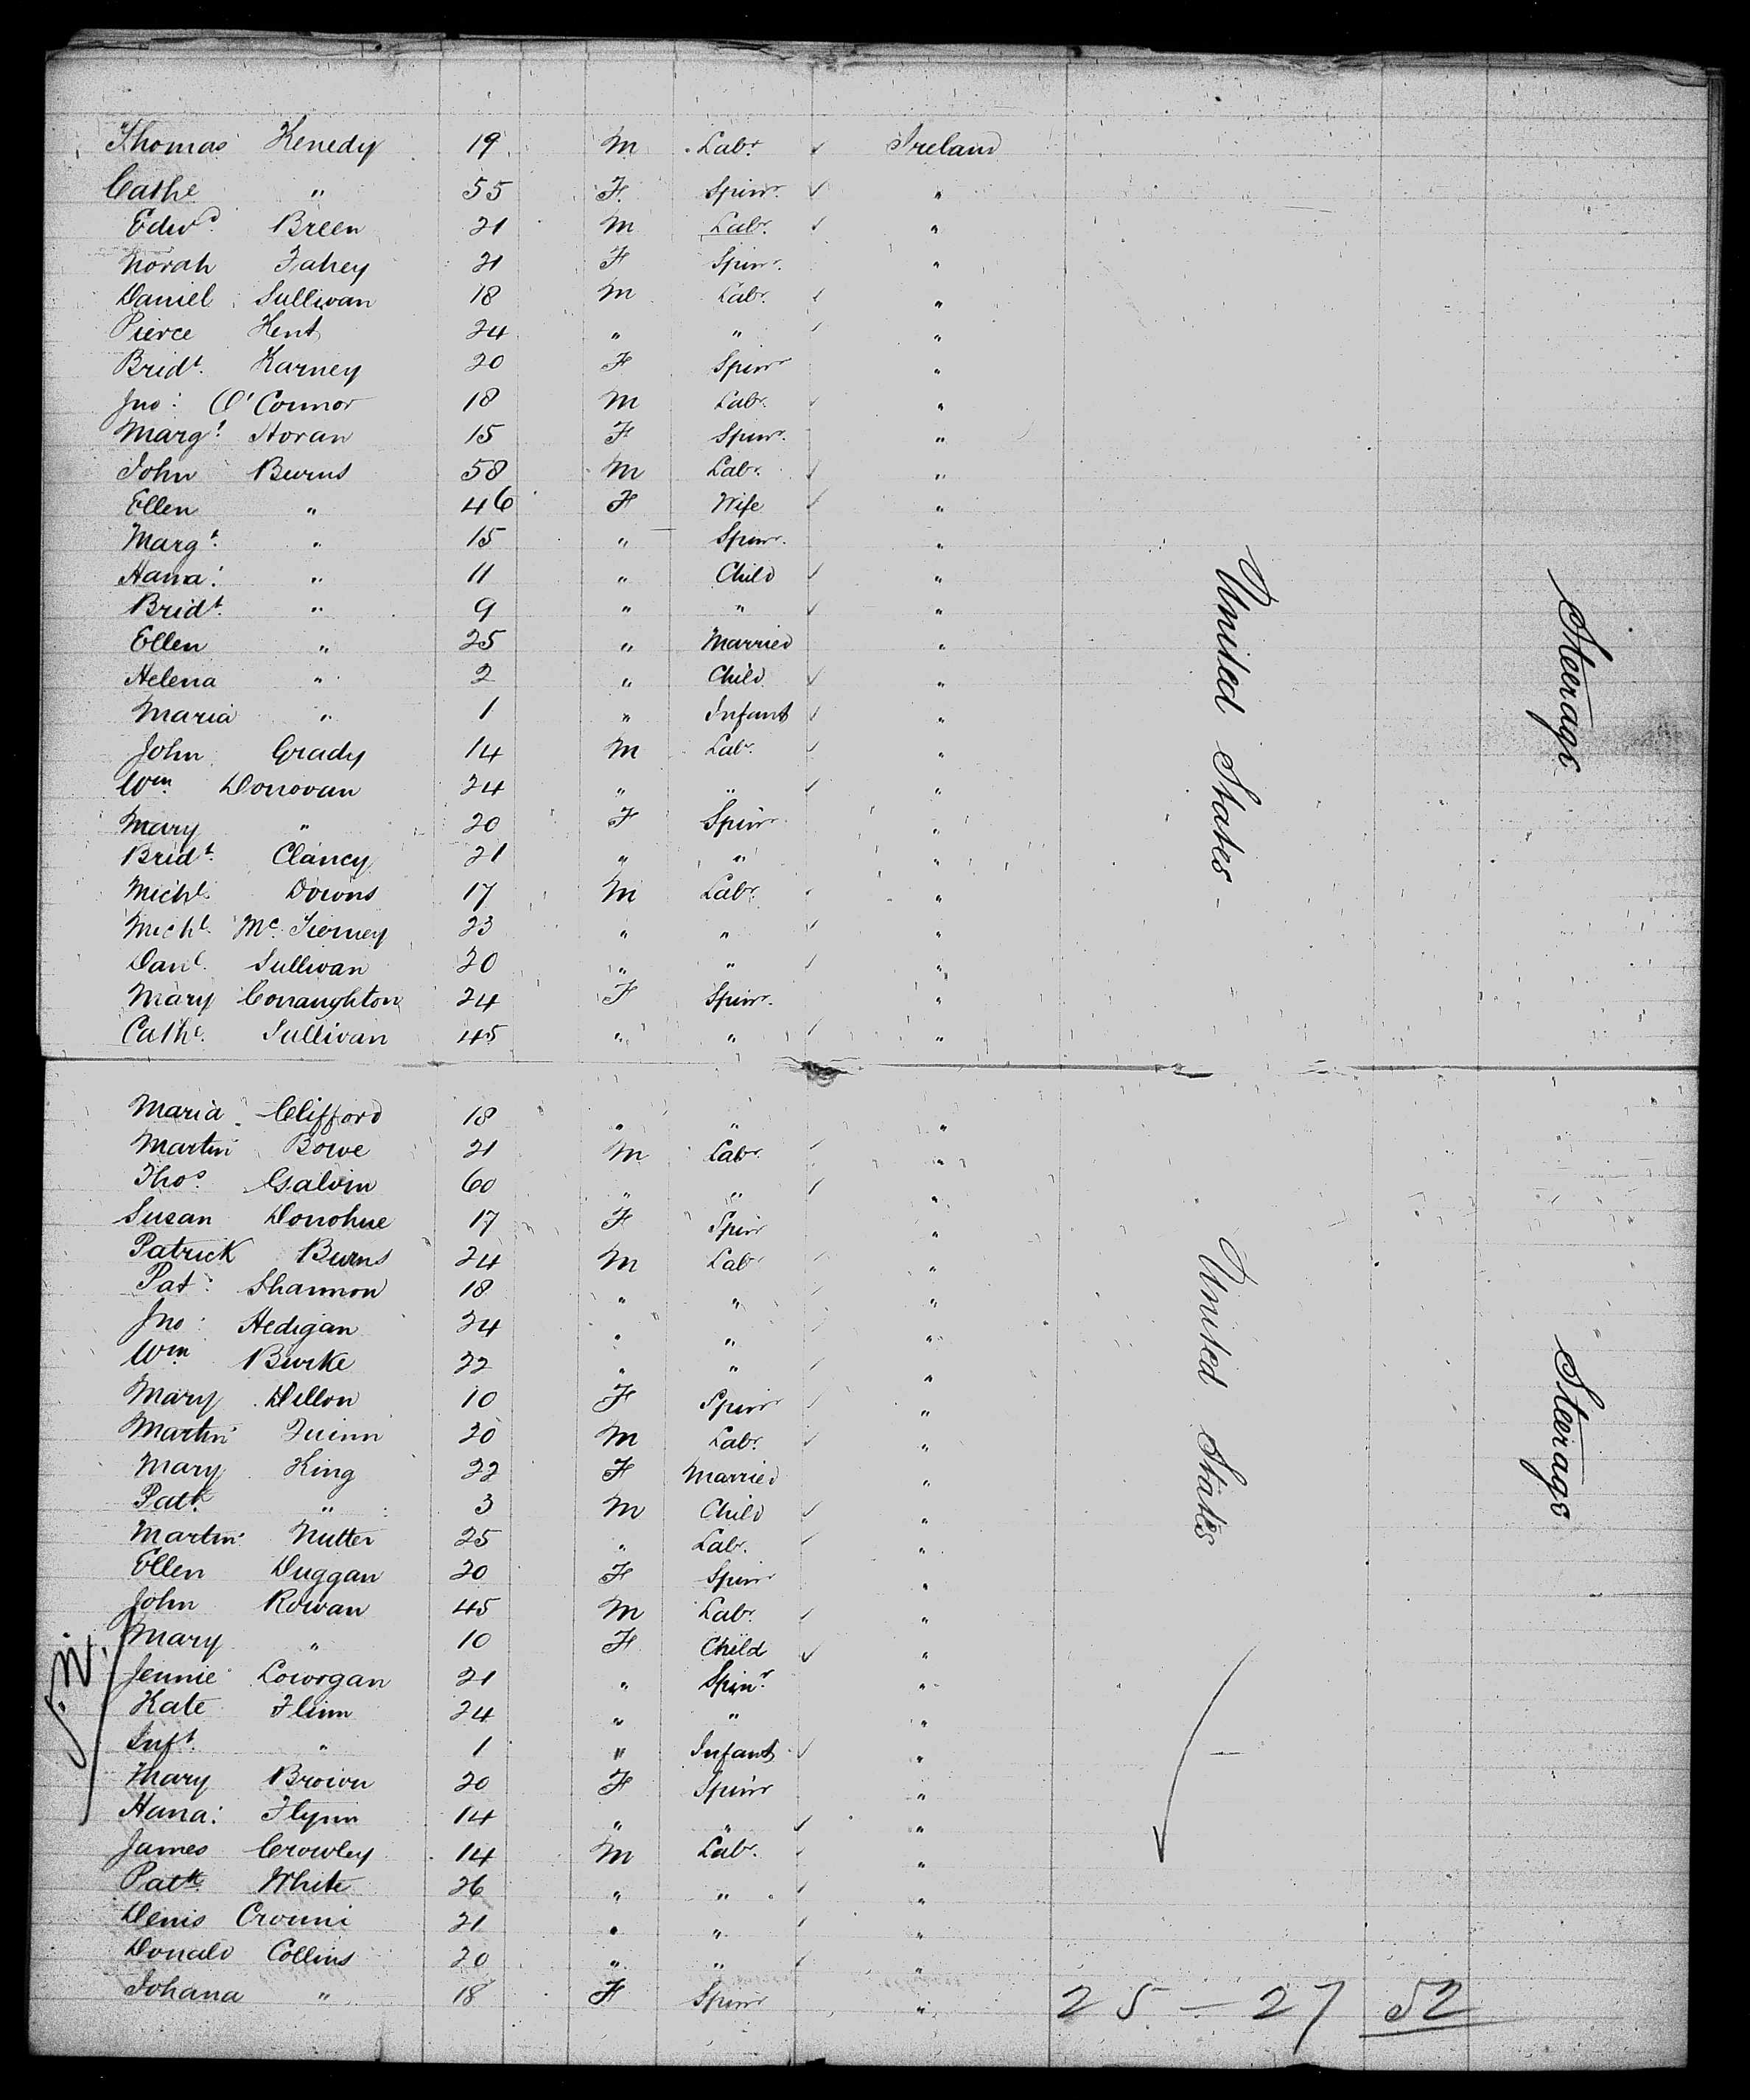 Thomas Kenedy 19 M Labr. ✓ Ireland
Cathe " 55 F. Spinr. ✓ "
Edwd. Breen 21 M Labr. ✓ "
Norah Fahey 21 F Spinr. "
Daniel Sullivan 18 M Labr. ✓ "
Pierce Kent 24 " " ✓ "
Bridt. Karney 20 F Spinr "
Jno: O'Connor 18 M Labr. ✓ "
Margt. Horan 15 F Spinr. "
John Burns 58 M Labr. ✓ "
Ellen " 46 F Wife ✓ "
Margt. " 15 " Spinr. "
Hana: " 11 " Child ✓ "
Bridt. " 9 " " ✓ "
Ellen " 25 " Married "
Helena " 2 " Child ✓ "
Maria " 1 " Infant ✓ "
John Grady 14 M Labr. ✓ "
Wm. Donovan 24 " " ✓ "
Mary " 20 F Spinr "
Bridt. Clancy 21 " " "
Michl. Downs 17 M Labr. ✓ "
Michl. Mc. Tierney 23 " " ✓ "
Danl. Sullivan 20 " " ✓ "
Mary Conaughton 24 F Spinr. "
Cathe. Sullivan 45 " " ✓ "
United States
Steerage
Maria Clifford 18 " " "
Martin Bowe 21 M Labr. ✓ "
Thos. Galvin 60 " " ✓ "
Susan Donohue 17 F Spinr "
Patrick Burns 24 M Labr ✓ "
Pat: Shannon 18 " " ✓ "
Jno: Hedigan 24 " " ✓ "
Wm. Burke 22 " " ✓ "
Mary Dillon 10 F Spinr ✓ "
Martin Quinn 20 M Labr. ✓ "
Mary King 22 F Married "
Patk. " 3 M Child ✓ "
Martin Nutter 25 " Labr. ✓ "
Ellen Duggan 20 F Spinr "
John Rowan 45 M Labr. ✓ "
Mary " 10 F Child ✓ "
Jennie Coworgan 21 " Spinr. "
Kate Flinn 24 " " "
Inft. " 1 " Infant ✓ "
Mary Brown 20 F Spinr "
Hana: Flynn 14 " " ✓ "
James Crowley 14 M Labr. ✓ "
Patk. White 26 " " ✓ "
Denis Crouni 21 " " ✓ "
Donald Collins 20 " " ✓ "
Johana " 18 F Spinr "
United States
Steerage
25 — 27 52